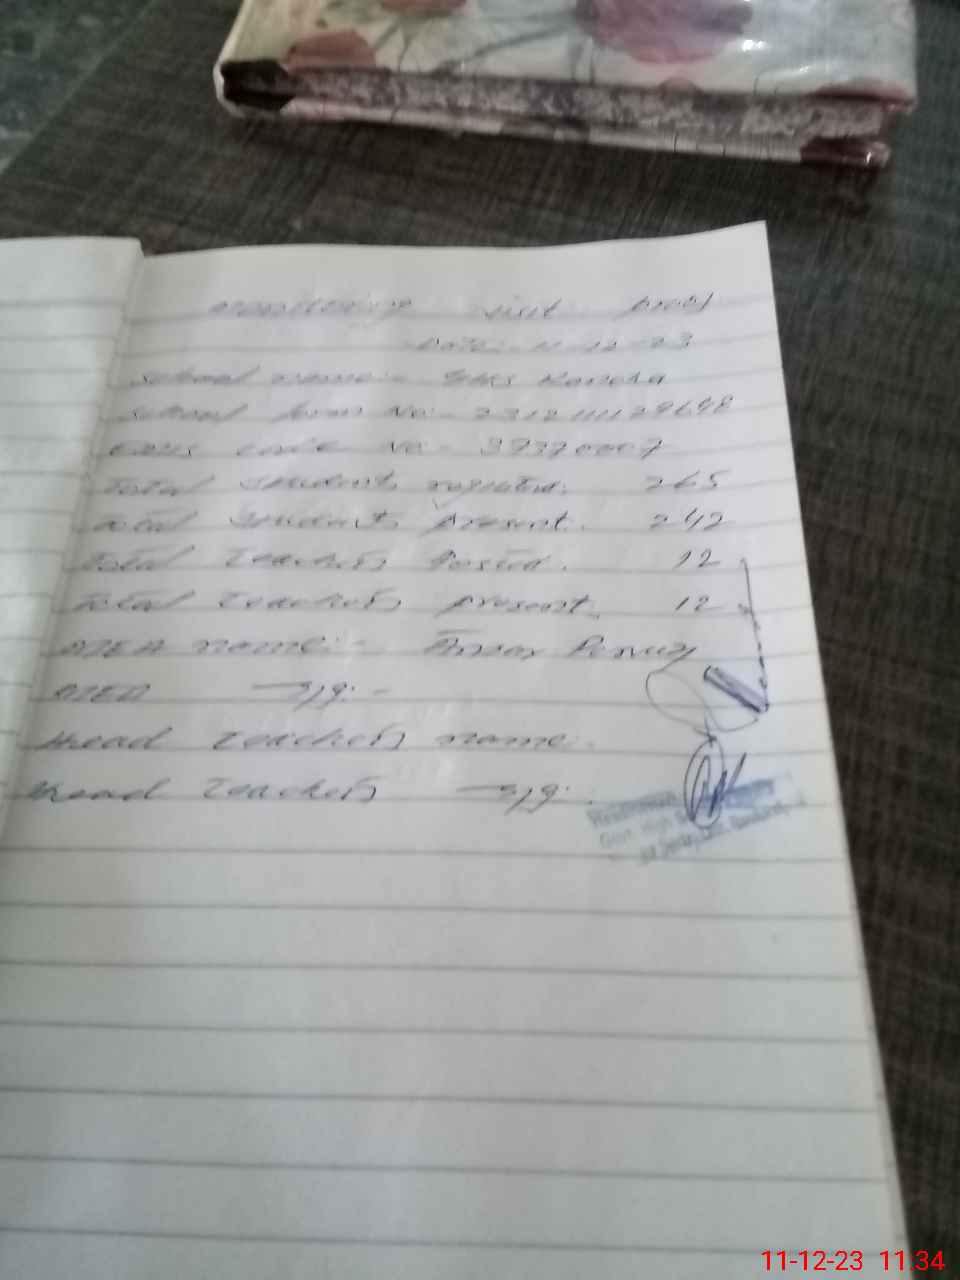 Monitoring visit proof
Date:- 11-12-23
School name:- GHS
School form No:- 231211129648
EMIS code No:- 37370007
Total Students registered: 265
Total Students present: 242
Total Teachers Posted. 12
Total Teachers present. 12
MEA name:-
MEA Sig:-
Head Teachers name:-
Head Teachers Sig:
11-12-23 11:34